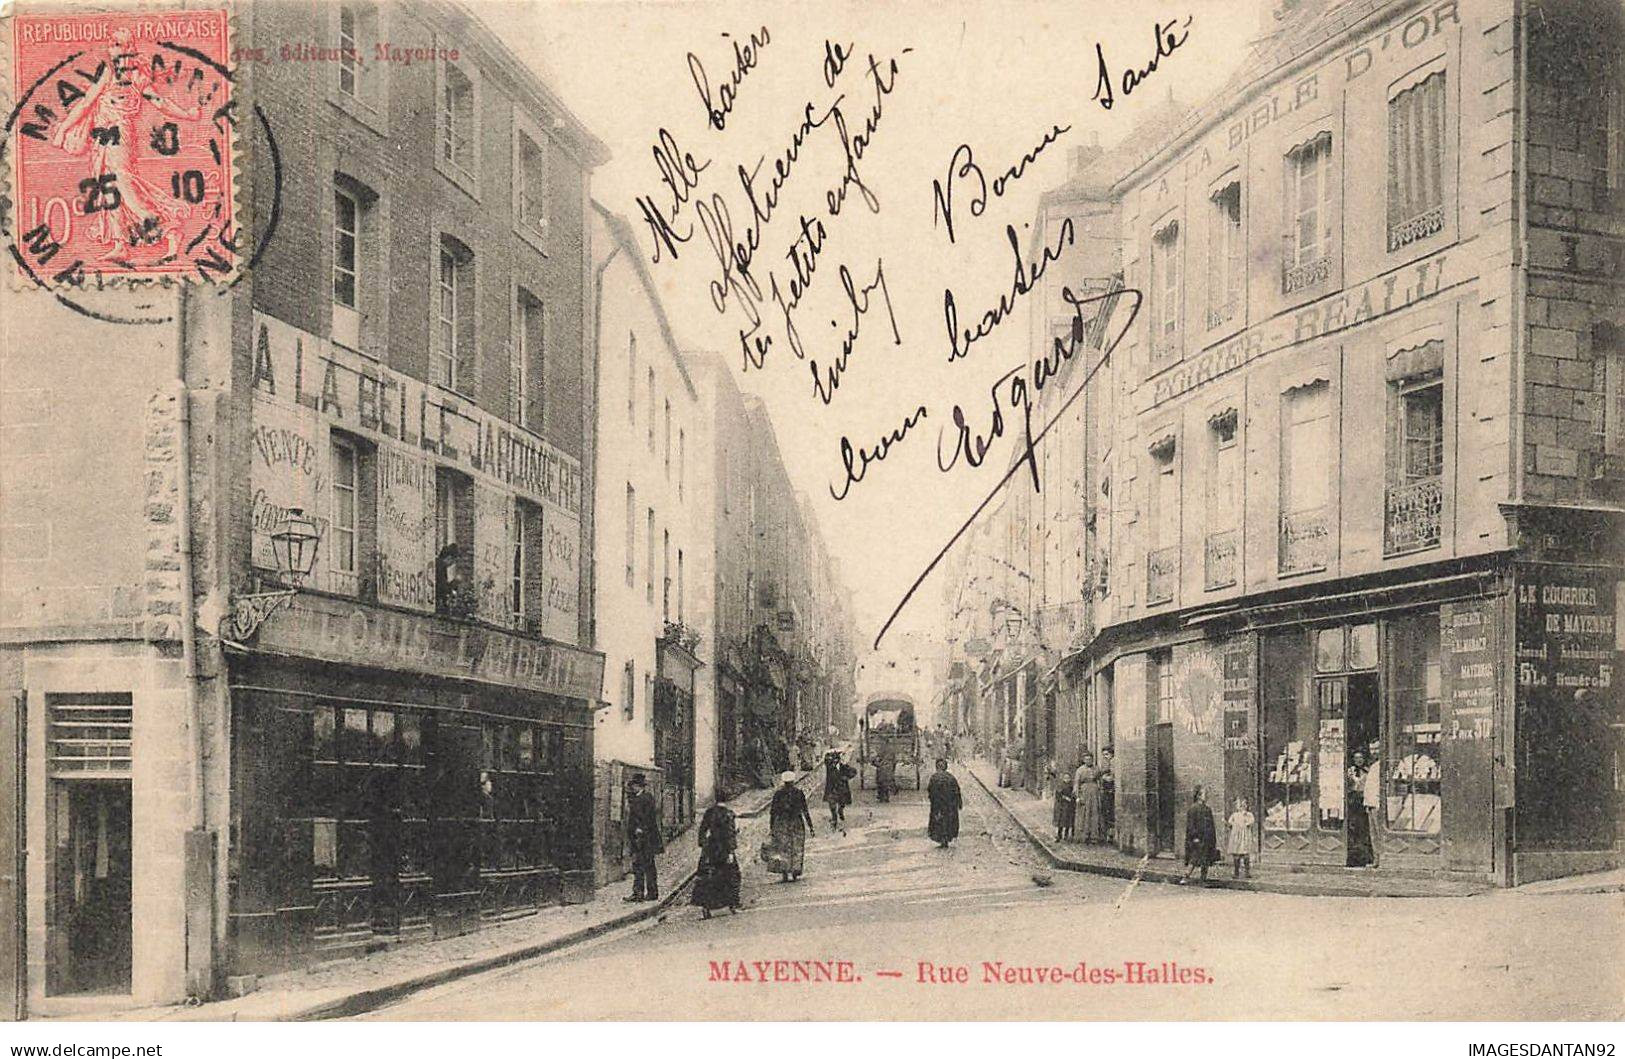 REPUBLIQUE FRANÇAISE
10c
MAYENNE
25 10
MAYENNE
res, éditeurs, Mayenne
Mille baisers
affectueux de
tes petits enfants.
Emily
Bonne Santé
bons baisers
Edgard
A LA BELLE JARDINIERE
VENTE
VETEMENTS
MESURES
LOUIS LAMBERT
A LA BIBLE D'OR
POIRIER-BEALU
LE COURRIER
DE MAYENNE
Journal hebdomadaire
5c Le Numéro 5c
ALMANACH
ANNUAIRE
MAYENNE. — Rue Neuve-des-Halles.
delcampe.net
IMAGESDANTAN92